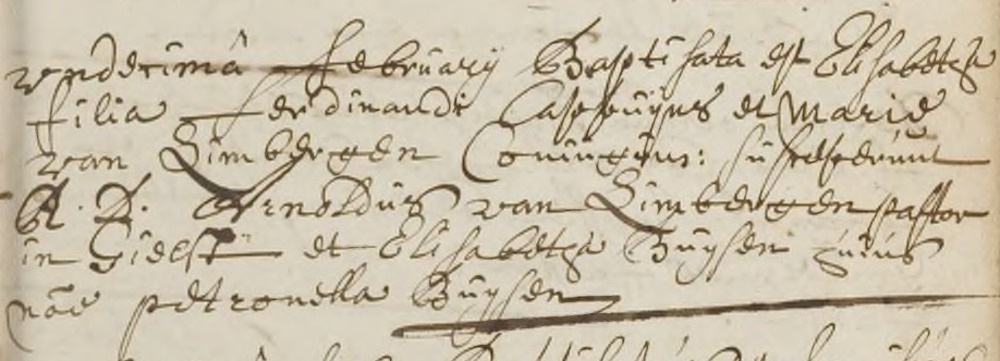 undecima februarij Baptisata est Elisabetha
filia ferdinandi et Marie
van Limbergen Coniugum: susceperunt
R. D. Arnoldus van Limbergen pastor
in Gielst et Elisabetha Buysen cuius
noe petronella Buysen